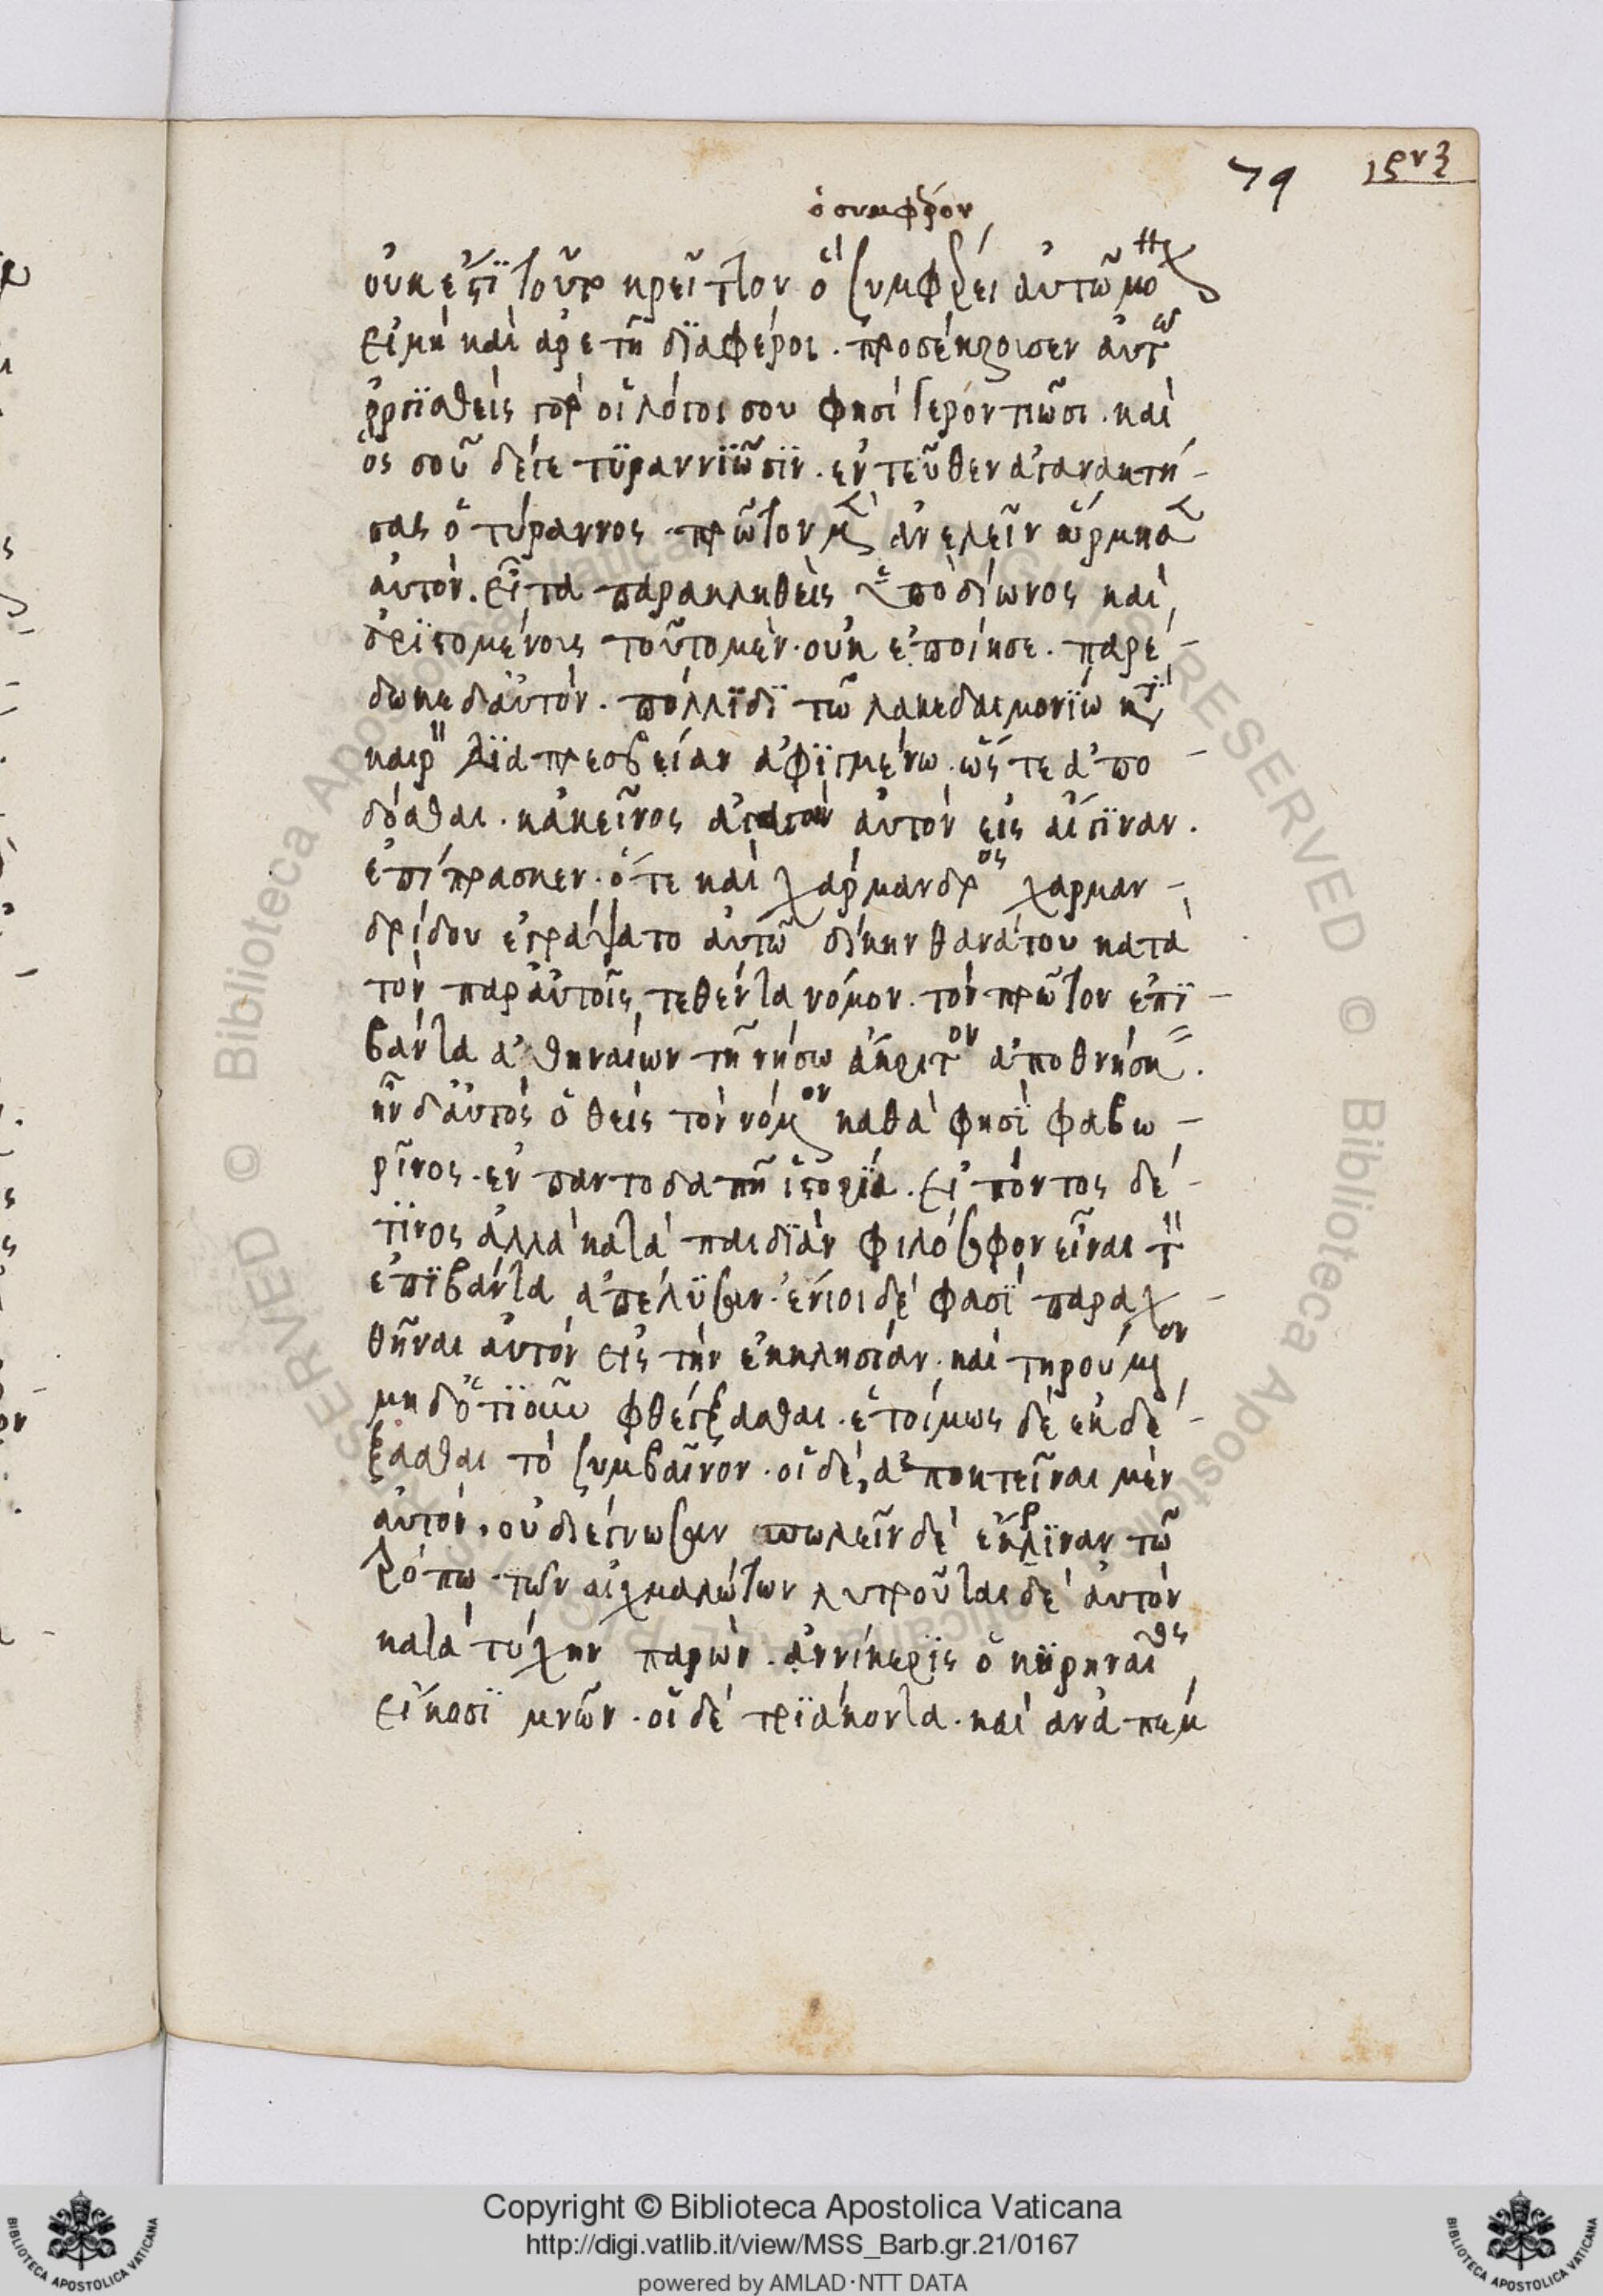 79 ρνζ
ὁ συμφέρον
οὐκ ἔστι τοῦτο κρεῖττον ὃ συμφέρει αὐτῶ μόνον
εἰ μὴ καὶ ἀρετῆ διαφέροι. προσέκρουσεν αὐτῶ
ὀργισθεὶς γὰρ οἱ λόγοι σου φησὶ γεροντιῶσι. καὶ
ὃς σοῦ δέ γε τυραννιῶσιν. ἐντεῦθεν ἀγανακτή-
σας ὁ τύραννος πρῶτον μὲν ἀνελεῖν ὥρμησεν
αὐτόν. εἶτα παρακληθεὶς ὑπὸ δίωνος καὶ
ἀριστομένους τοῦτο μὲν οὐκ ἐποίησε. παρέ-
δωκε δ' αὐτὸν. πόλλιδι τῶ λακεδαιμονίω κατὰ
καιρὸν διὰ πρεσβείαν ἀφιγμένω. ὥστε ἀπο-
δόσθαι. κἀκεῖνος ἀγαγὼν αὐτὸν εἰς αἴγιναν.
ἐπίπρασκεν. ὅτε καὶ χάρμανδρος χαρμαν-
δρίδου ἐγράψατο αὐτῶ δίκην θανάτου κατὰ
τὸν παρ' αὐτοῖς τεθέντα νόμον. τὸν πρῶτον ἐπι-
βάντα ἀθηναίων τῆ νήσω ἄκριτον ἀποθνήσκειν.
ἦν δ' αὐτὸς ὁ θεὶς τὸν νόμον καθά φησι φαβω-
ρῖνος. ἐν παντοδαπῆ ἱστορία. εἰπόντος δέ
τινος ἀλλὰ κατὰ παιδιὰν φιλόσοφον εἶναι τὸν
ἐπιβάντα ἀπέλυσαν. ἔνιοι δέ φασι παραχ-
θῆναι αὐτὸν εἰς τὴν ἐκκλησίαν. καὶ τηρούμενον
μηδ' ὁτιοῦν φθέγξασθαι. ἑτοίμως δὲ ἐκδέ-
ξασθαι τὸ συμβαῖνον. οἱ δὲ, ἀποκτεῖναι μὲν
αὐτὸν, οὐ διέγνωσαν πωλεῖν δὲ ἔκριναν τῶ
τρόπω τῶν αἰχμαλώτων λυτροῦται δὲ αὐτὸν
κατὰ τύχην παρὼν. ἀννίκερις ὁ κυρηναῖος
εἴκοσι μνῶν. οἱ δὲ τριάκοντα. καὶ ἀναπέμ
Copyright © Biblioteca Apostolica Vaticana
http://digi.vatlib.it/view/MSS_Barb.gr.21/0167
powered by AMLAD·NTT DATA